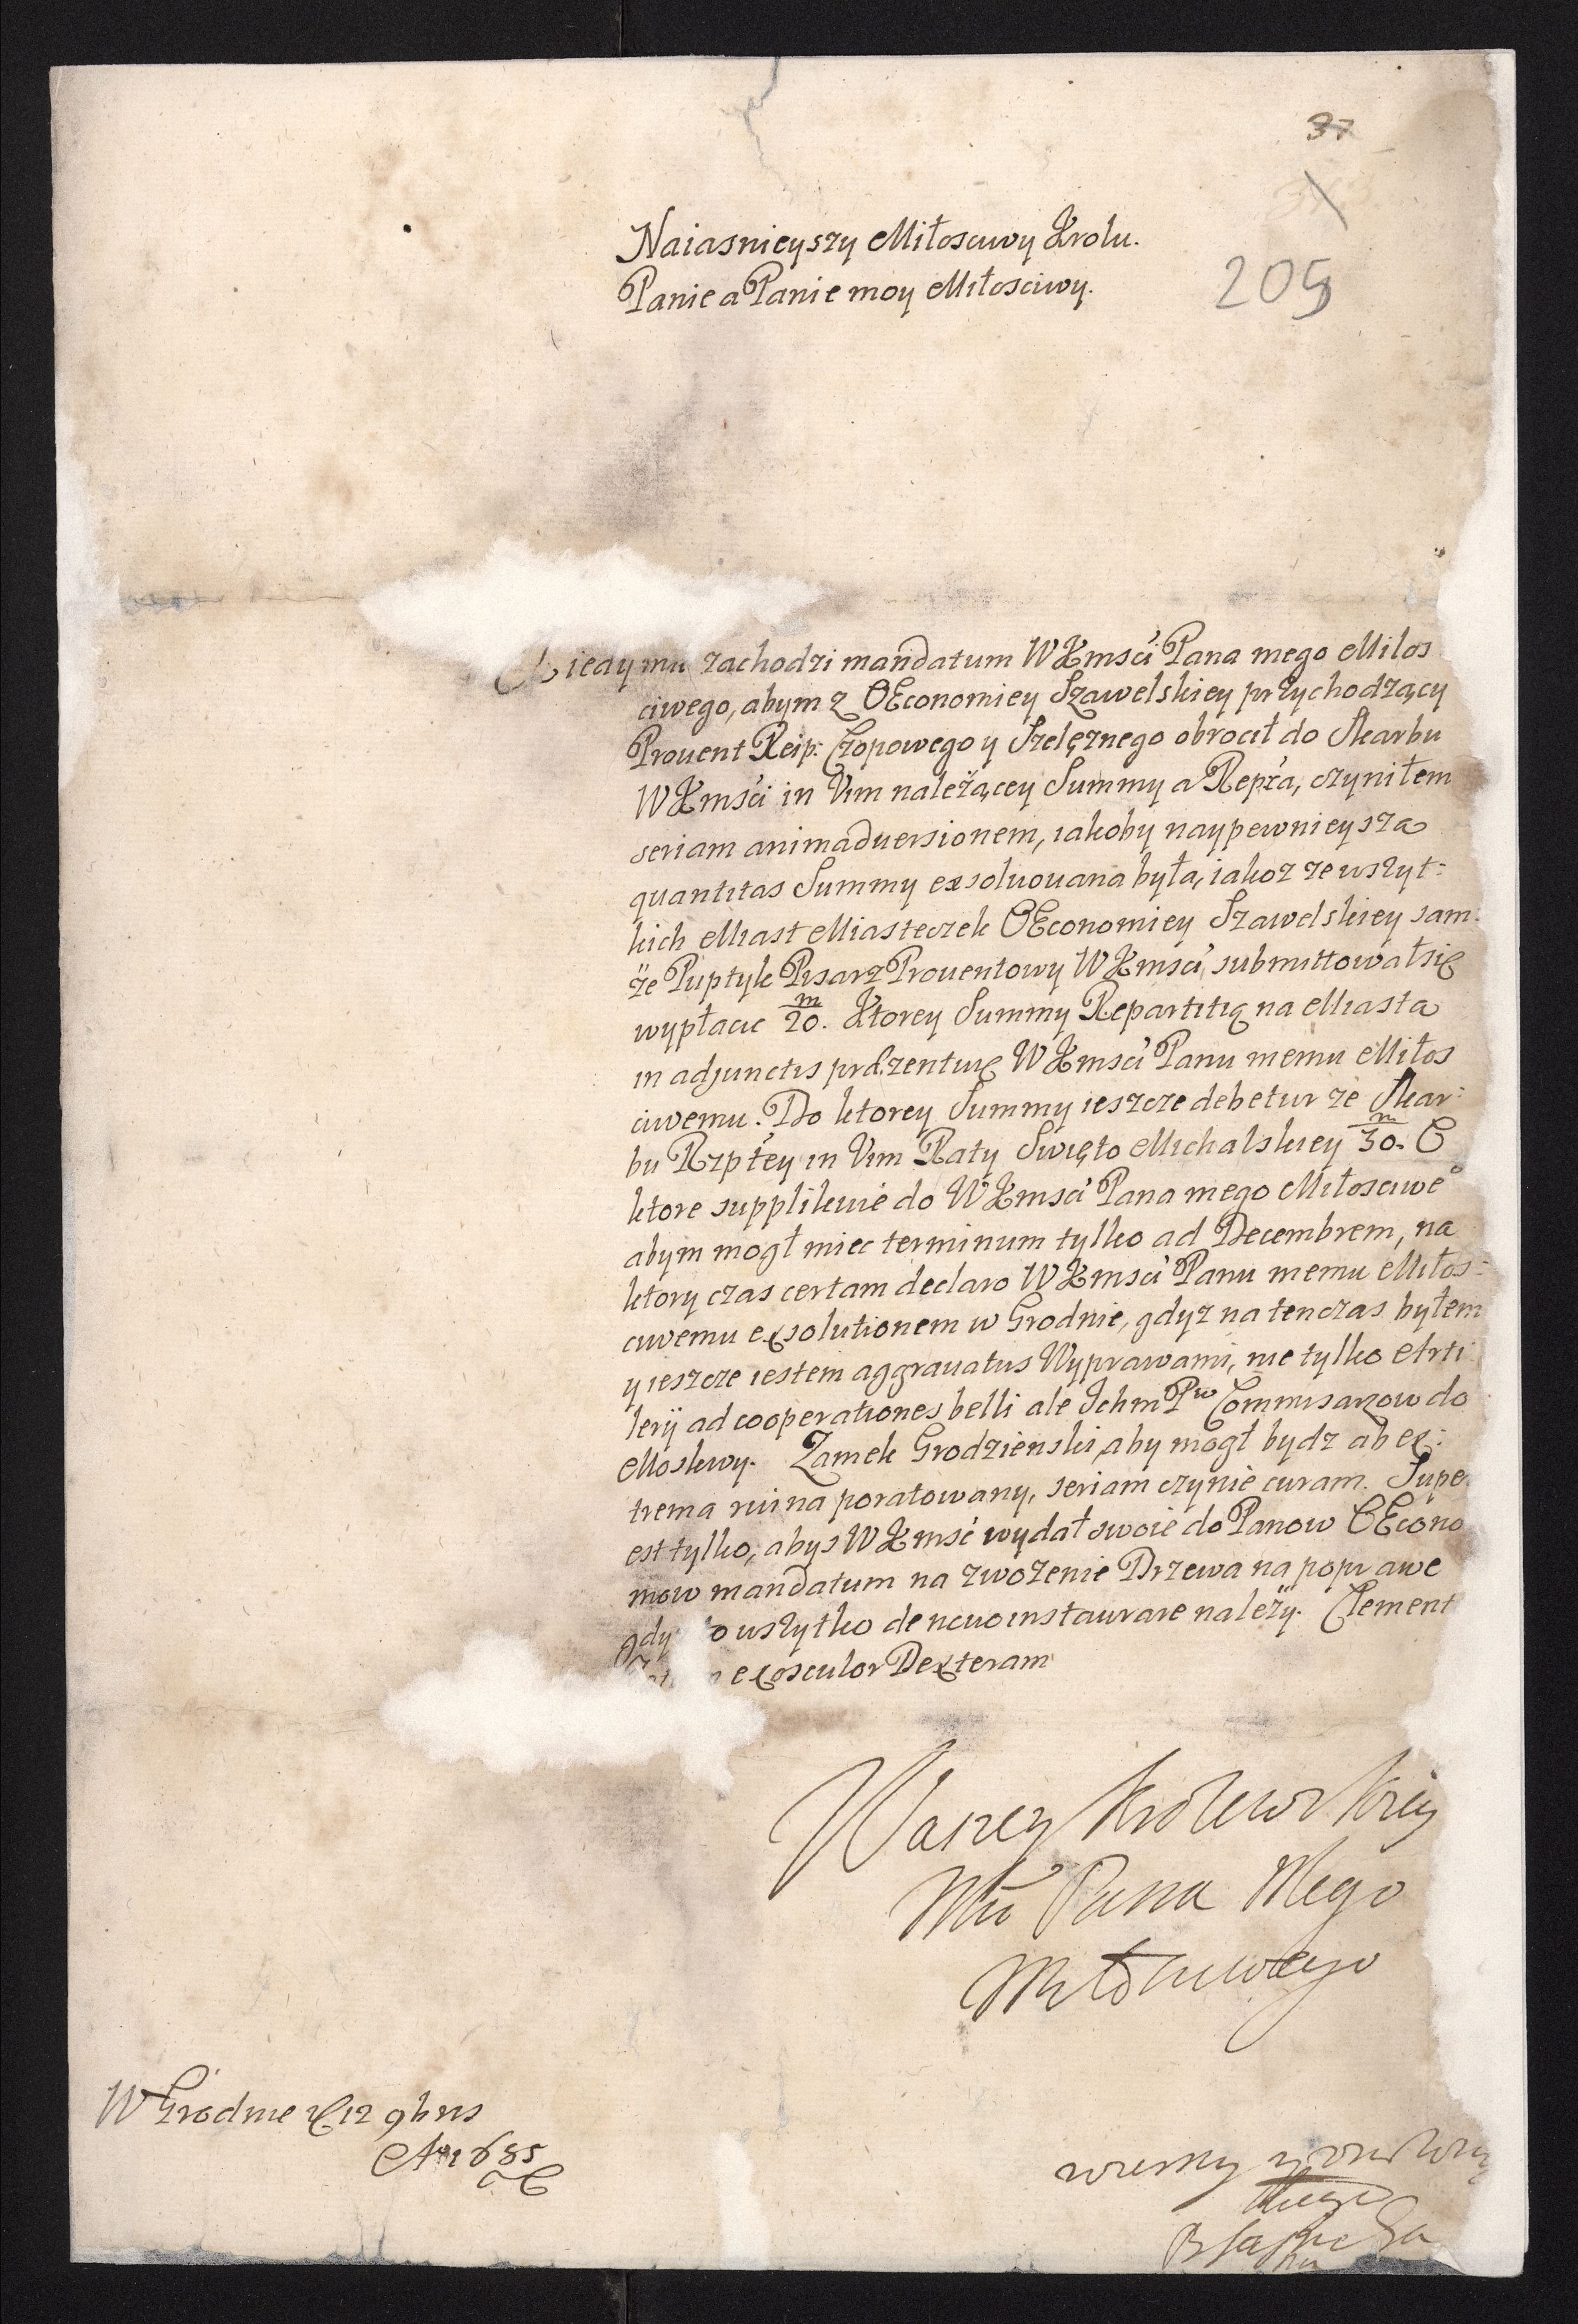 37
205
Naiasnieyszy Miłosciwy Krolu.
Panie a Panie moy Miłosciwy.
Kiedy mu zachodzi mandatum WKmsci Pana mego Milos
ciwego, abym z OEconomiey Szawelskiey przychodzący
Prouent Reip: Czopowego y Szelęznego obrocił do Skarbu
WKmsci in Vim nalezącey Summy a Repca, czyniłem
seriam animaduersionem, iakoby naypewnieysza
quantitas Summy exsoluouana była, iakoz ze wszyt:
kich Miast Miasteczek OEconomiey Szawelskiey sam:
ze Puptyk Pisarz Prouentowy WKmsci, submittowałsię
wypłacic 20.m Ktorey Summy Repartitią na Miasta
in adjunctis præzentuię WKmsci Panu memu Miłos
ciwemu. Do ktorey Summy ieszcze debetur ze Skar:
bu Rzpłey in Vim Raty Swięto Michalskiey 30.m
ktore supplikuie do WKmsci Pana mego Miłosciwe°
abym mogł miec terminum tylko ad Decembrem, na
ktory czas certam declaro WKmsci Panu memu Miłos:
ciwemu exsolutionem w Grodnie, gdyz na tenczas byłem
y ieszcze iestem aggrauatus Wyprawami, nie tylko Arti
lerÿ ad cooperationes belli ale Ichm Pw Commisarzow do
Moskwy. Zamek Grodzienski, aby mogł bydz ab ex:
trema ruina poratowany, seriam czynie curam. Supe
est tylko, abys WKmsc wydał swoie do Panow OEcono
mow mandatum na zwozenie Drzewa na poprawe
gdy o wszytko de nouo instaurare nalezy. Clement
exosculor Dexteram
Waszey Krolewskiey
Mci Pana Mego
Miłosciwego
W Grodnie 12 9bris
A° 1685
wierny y
sługa
B Sapieha